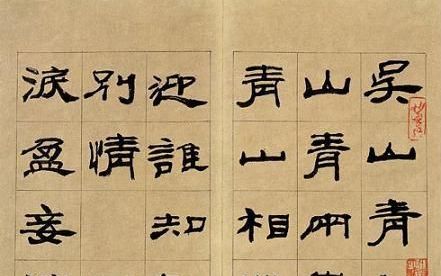 吳山青
山青兩
青山相
迎誰知
別情
淚盈妾